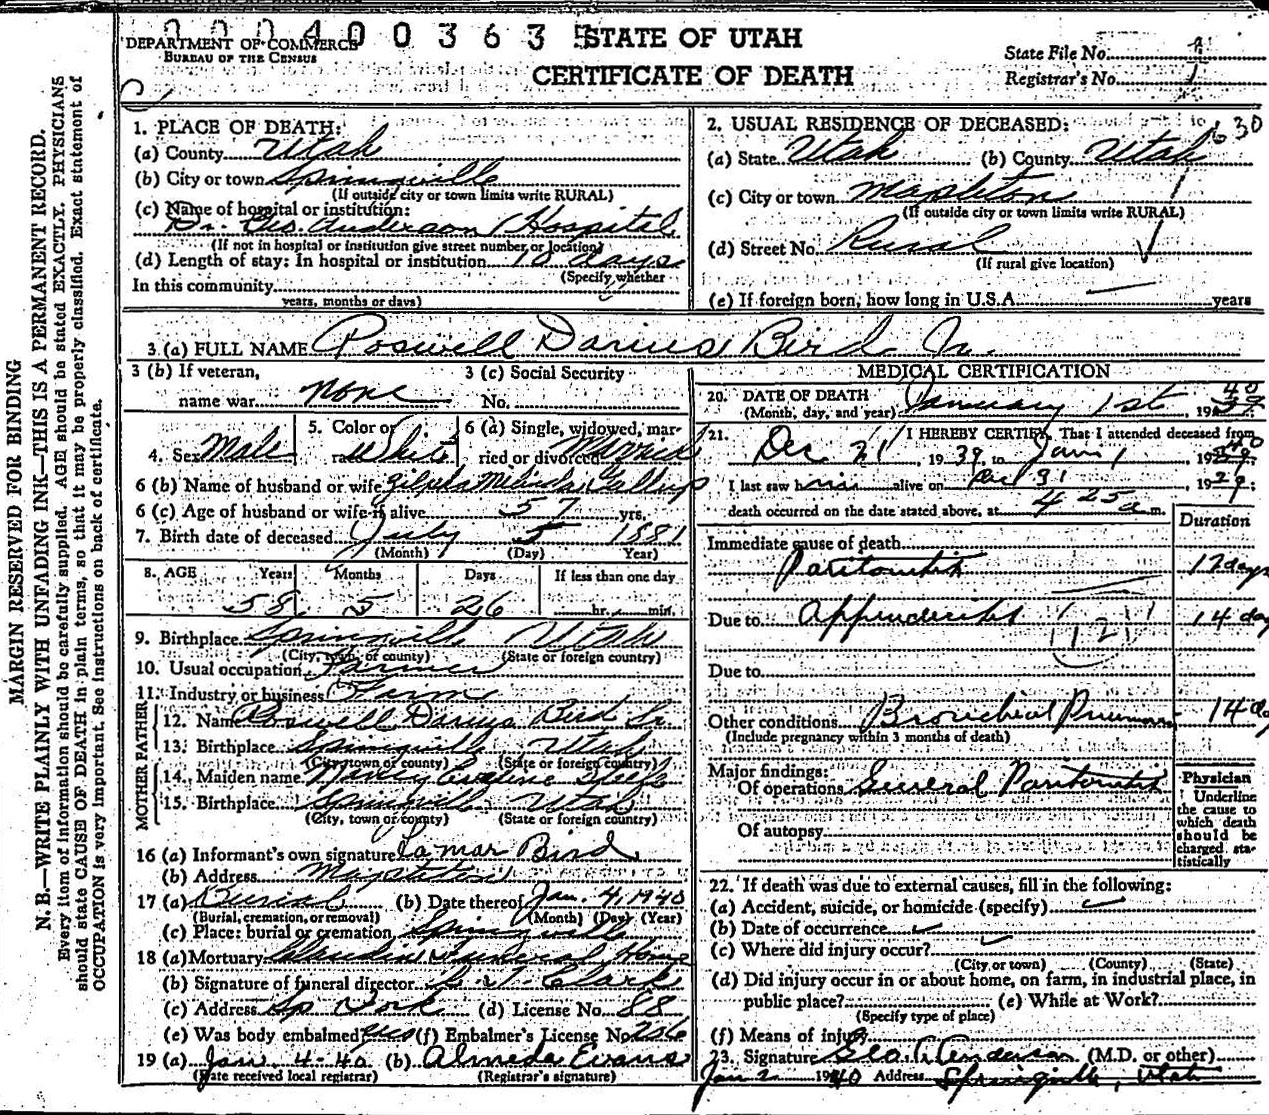 0 0 0 4 0 0 3 6 3 5
STATE OF UTAH
CERTIFICATE OF DEATH
DEPARTMENT OF COMMERCE
BUREAU OF THE CENSUS
State File No.
Registrar's No. 1
MARGIN RESERVED FOR BINDING
N. B.—WRITE PLAINLY WITH UNFADING INK—THIS IS A PERMANENT RECORD.
Every item of information should be carefully supplied. AGE should be stated EXACTLY. PHYSICIANS
should state CAUSE OF DEATH in plain terms, so that it may be properly classified. Exact statement of
OCCUPATION is very important. See instructions on back of certificate.
1. PLACE OF DEATH:
(a) County Utah
(b) City or town Springville
(If outside city or town limits write RURAL)
(c) Name of hospital or institution:
Dr. Geo. Anderson Hospital
(If not in hospital or institution give street number or location)
(d) Length of stay: In hospital or institution 10 days
(Specify whether
In this community
years, months or days)
2. USUAL RESIDENCE OF DECEASED: 630
(a) State Utah (b) County Utah
(c) City or town Mapleton
(If outside city or town limits write RURAL)
(d) Street No. Rural
(If rural give location)
(e) If foreign born, how long in U.S.A. — years
3 (a) FULL NAME Roswell Darius Bird Jr.
3 (b) If veteran,
name war None
3 (c) Social Security
No.
4. Sex Male
5. Color or
race White
6 (a) Single, widowed, mar-
ried or divorced Married
6 (b) Name of husband or wife Zilpha Milinda Gallup
6 (c) Age of husband or wife if alive 57 yrs.
7. Birth date of deceased July 5 1881
(Month) (Day) Year)
8. AGE Years Months Days If less than one day
58 5 26 hr. min.
9. Birthplace Springville Utah
(City, town, of county) (State or foreign country)
10. Usual occupation Farmer
11. Industry or business Farm
FATHER
12. Name Roswell Darius Bird Sr.
13. Birthplace Springville Utah
(City, town or county) (State or foreign country)
MOTHER
14. Maiden name Nancy
15. Birthplace Springville Utah
(City, town or county) (State or foreign country)
16 (a) Informant's own signature Lamar Bird
(b) Address Mapleton
17 (a) Burial (b) Date thereof Jan. 4, 1940
(Burial, cremation, or removal) (Month) (Day) (Year)
(c) Place: burial or cremation Springville
18 (a) Mortuary Claudin Funeral Home
(b) Signature of funeral director Clark
(c) Address Sp Fork (d) License No. 88
(e) Was body embalmed? yes (f) Embalmer's License No. 256
19 (a) Jan. 4-40 (b) Almeda Evans
(Date received local registrar) (Registrar's signature)
MEDICAL CERTIFICATION
20. DATE OF DEATH
(Month, day, and year) January 1st, 1940
21. I HEREBY CERTIFY, That I attended deceased from
Dec 21, 1939, to Jan 1, 1940
I last saw him alive on Dec 31 1939;
death occurred on the date stated above, at 4 25 a m.
Duration
Immediate cause of death
Paritonitis 12 days
Due to Appendicitis 14 day
121
Due to
Other conditions Bronchial Pneumonia 14 da
(Include pregnancy within 3 months of death)
Major findings:
Of operations General Paritonitis
Of autopsy
Physician
Underline
the cause to
which death
should be
charged sta-
tistically
22. If death was due to external causes, fill in the following:
(a) Accident, suicide, or homicide (specify)
(b) Date of occurrence
(c) Where did injury occur?
(City or town) (County) (State)
(d) Did injury occur in or about home, on farm, in industrial place, in
public place? (e) While at Work?
(Specify type of place)
(f) Means of injury
23. Signature Geo. A. Anderson (M.D. or other)
Jan 2 1940 Address Springville, Utah